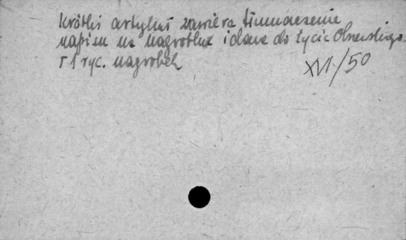 Krótki artykuł zawiera tłumaczenie
napisu na nagrobku i dane do życia
+ 1 ryc. nagrobek
XVI/50